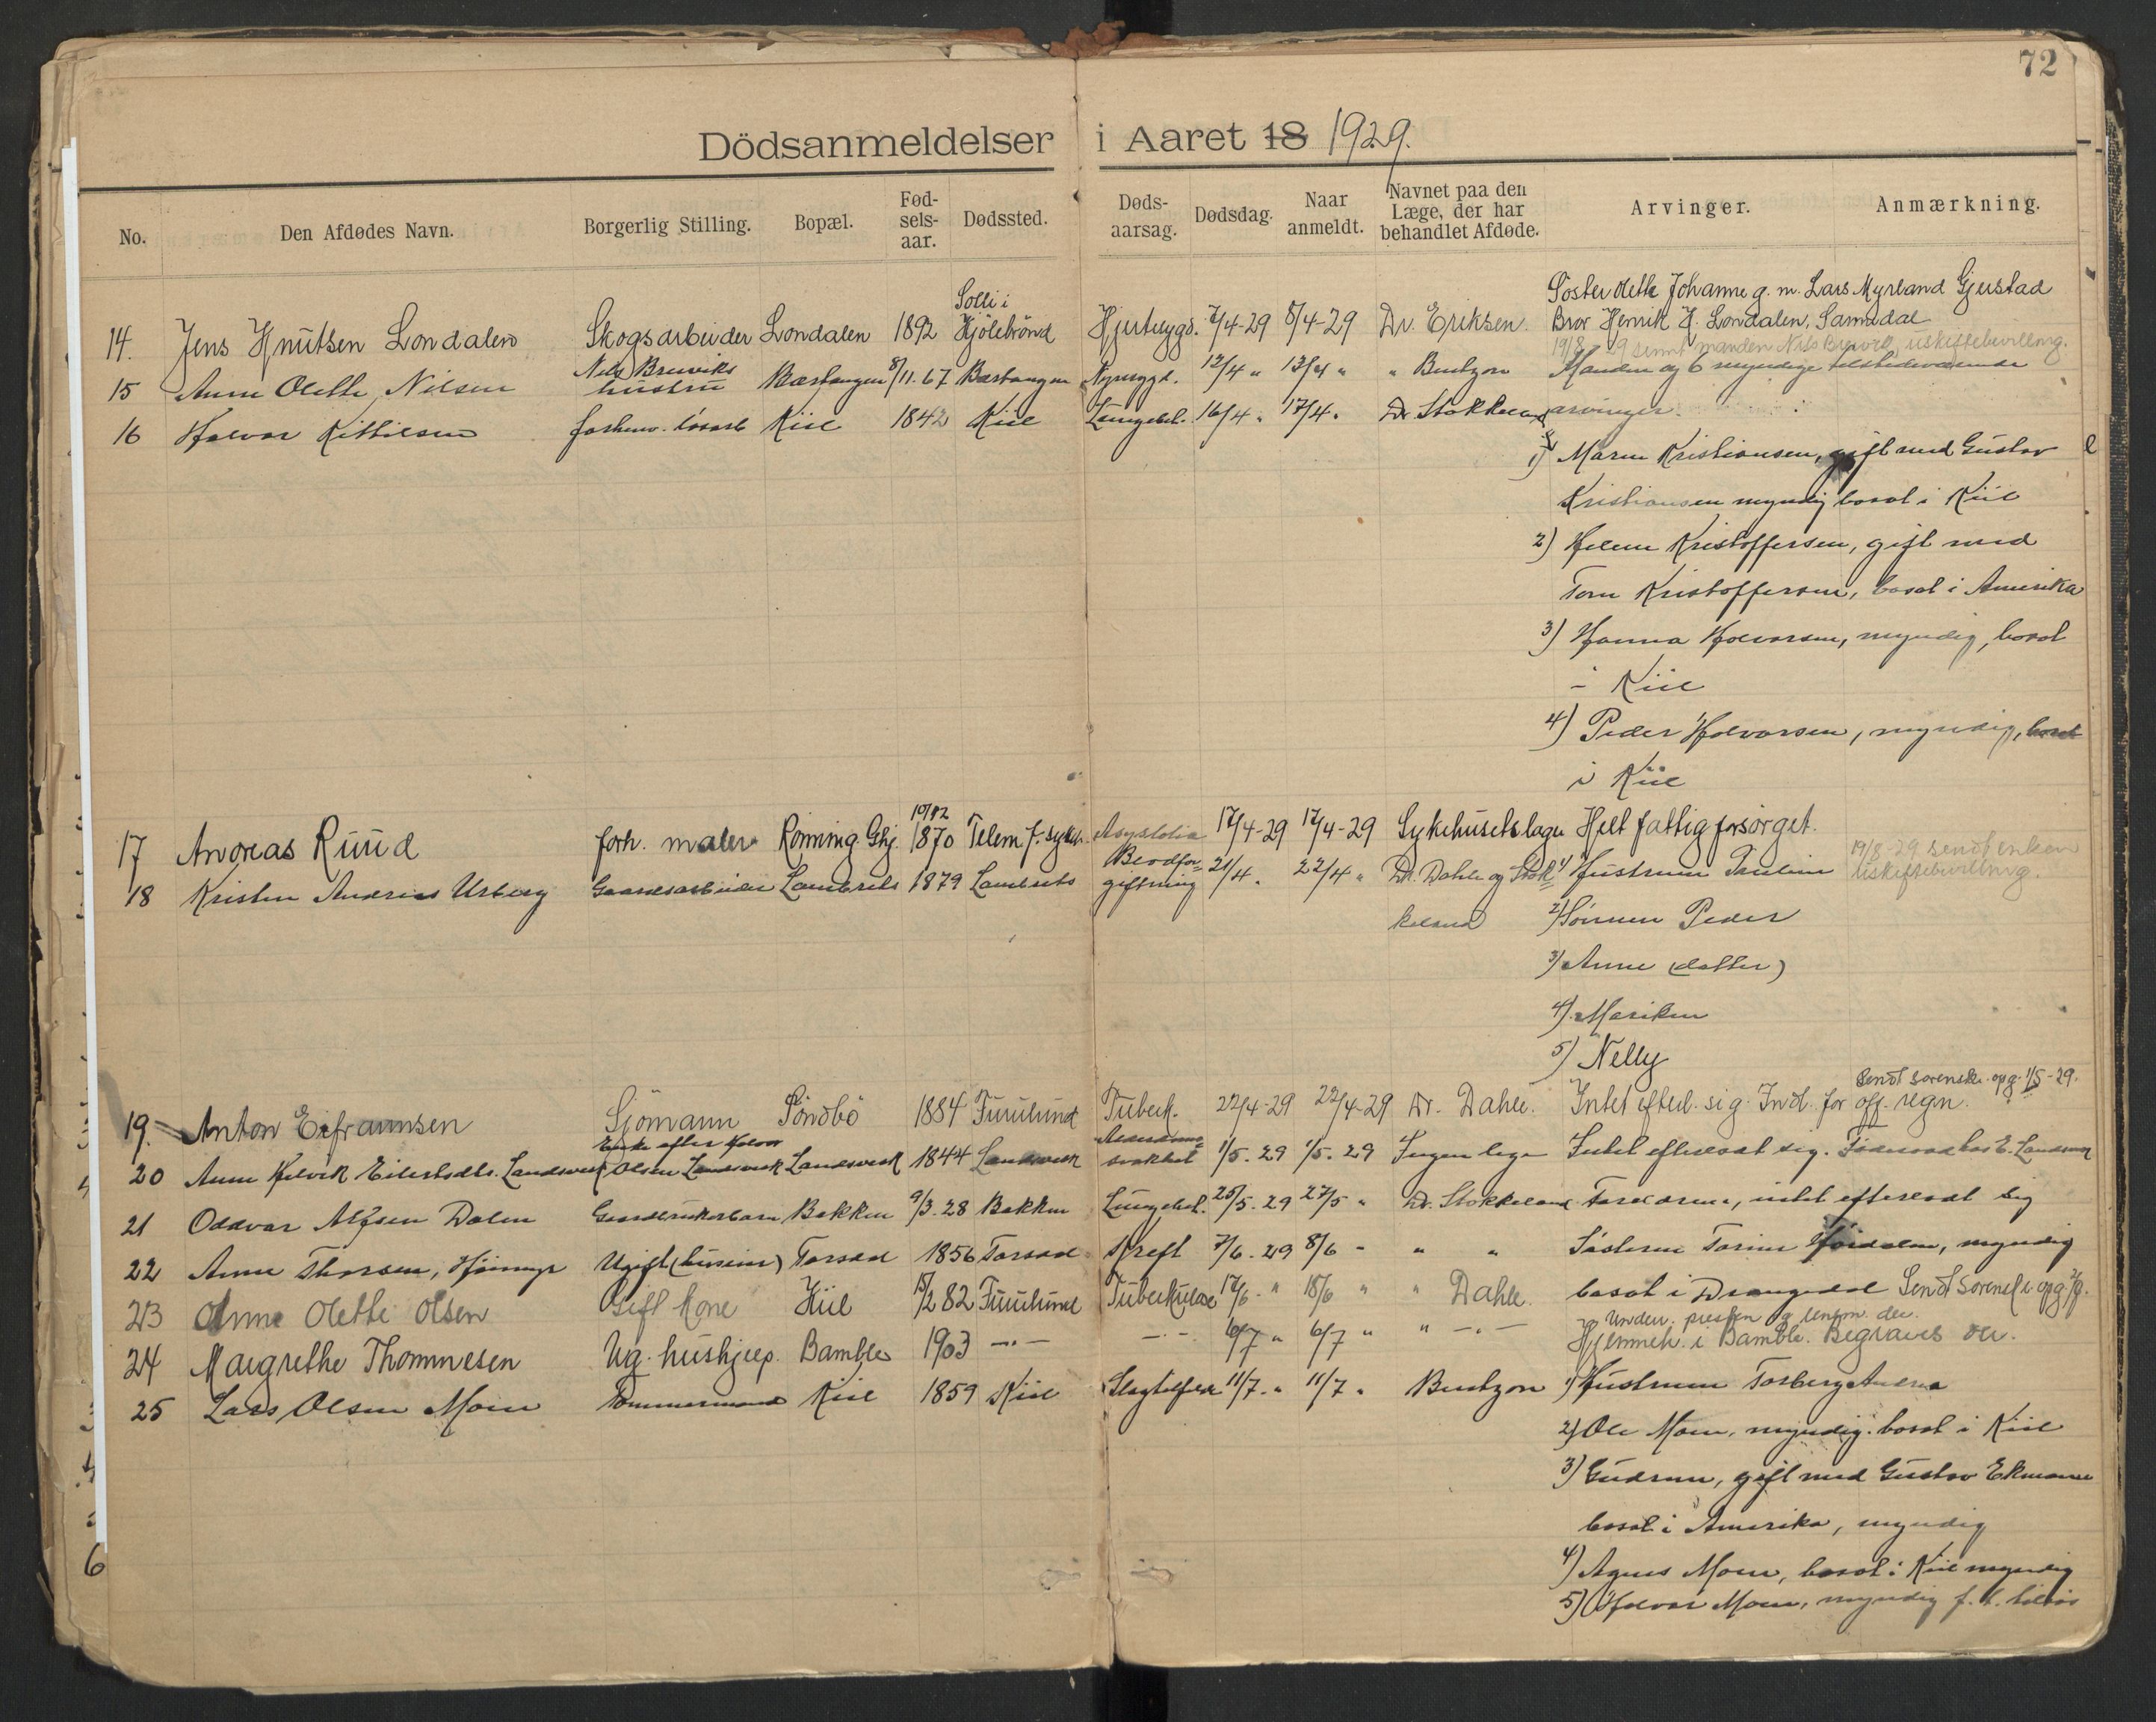 72
Dödsanmeldelser i Aaret 18 1929.
No. Den Afdødes Navn. Borgerlig Stilling. Bopæl. Fødselsaar. Dødssted. Dødsaarsag. Dødsdag. Naar anmeldt. Navnet paa den Læge, der har behandlet Afdøde. Arvinger. Anmærkning.
Søster Olette Johanne g. m. Lars Myrland Gjerstad
14. Jens Knutsen Londalen Skogsarbeider Londalen 1892 Solli i Kjölebrönd Hjertelygd. 7/4-29 8/4-29 Dr. Eriksen Bror Henrik K. Londalen, Sannidal
19/8-29 sendt manden Nils Brevik uskiftebevilling.
15 Anne Olette Nilsen Nils Breviks hustru Barlangen 8/11.67 Barlangen Nyresygd. 12/4 " 13/4 " " Bentzon Manden og 6 myndige tilstedeværende
16 Halvor Kittilsen forhenv. løsarb Kiil 1842 Kiil Lungebet. 16/4 " 17/4 " Dr. Stokkeland arvinger.
1) Maren Kristiansen, gift med Gustav
Kristiansen myndig bosat i Kiil
2) Helene Kristoffersen, gift med
Tom Kristoffersen, bosat i Amerika
3) Hanna Halvorsen, myndig, bosat
i Kiil
4) Peder Halvorsen, myndig, bosat
i Kiil
17 Andreas Ruud forh. maler Rönning Ghj. 10/12 1870 Telem. f. sykeh. Asystolia 17/4-29 17/4-29 Sykehusetslæge Helt fattigforsørget.
18 Kristen Andreas Urberg Gaardsarbeider Lambrets 1879 Lambrets Blodforgiftning 21/4 " 22/4 " Dr. Dahle og Stokkeland 1) Hustruen Pauline 19/8-29 sendt enken uskiftebevilling.
2) Sønnen Peder
3) Anne (datter)
4) Mariken
5) Nelly
Sendt sorensk. opg. 1/5-29.
19. Anton Eifraimsen Sjömann Söndbö 1884 Furulund Tuberk. 22/4-29 22/4-29 Dr. Dahle. Intet efterl. sig. Indl. for off. regn.
20 Anne Kelvik Eilertsdtr. Landsverk Enke efter Halvor Olsen Landsverk Landsverk 1844 Landsverk Alderdomssvakhet 1/5. 29 1/5. 29 Ingen lege Intet efterlat sig. Föderaad hos E. Landsverk
21 Oddvar Alfsen Dalen Gaardbrukerbarn Bakken 9/3.28 Bakken Lungebet. 25/5.29 27/5 " Dr. Stokkeland Forældrene, intet efterlat sig
22 Anne Thorsen, Ugift Torsdal 1856 Torsdal Kreft 7/6.29 8/6 " " " Søsteren Torine, myndig
bosat i Drangedal Sendt sorensk. opg.
23 Anne Olette Olsen Gift Kone Kiil 15/2 82 Furulund Tuberkulose 17/6 " 18/6 " " Dahle.
Underr. presten og lensm. der.
24 Margrethe Thommesen Ug. hushjelp. Bamble 1903 —"— —"— 6/7 " 6/7 " " —"— Hjemmeh. i Bamble. Begraves der.
25 Lars Olsen Moen Tømmermand Kiil 1859 Kiil Slagtilfelle 11/7 " 11/7 " Bentzon 1) Hustruen Torberg Andrea
2) Ole Moen, myndig. bosat i Kiil
3) Gudrun, gift med Gustav Ekmann
bosat i Amerika, myndig
4) Agnes Moen, bosat i Kiil myndig
5) Halvor Moen, myndig f. t. tilsjøs
6